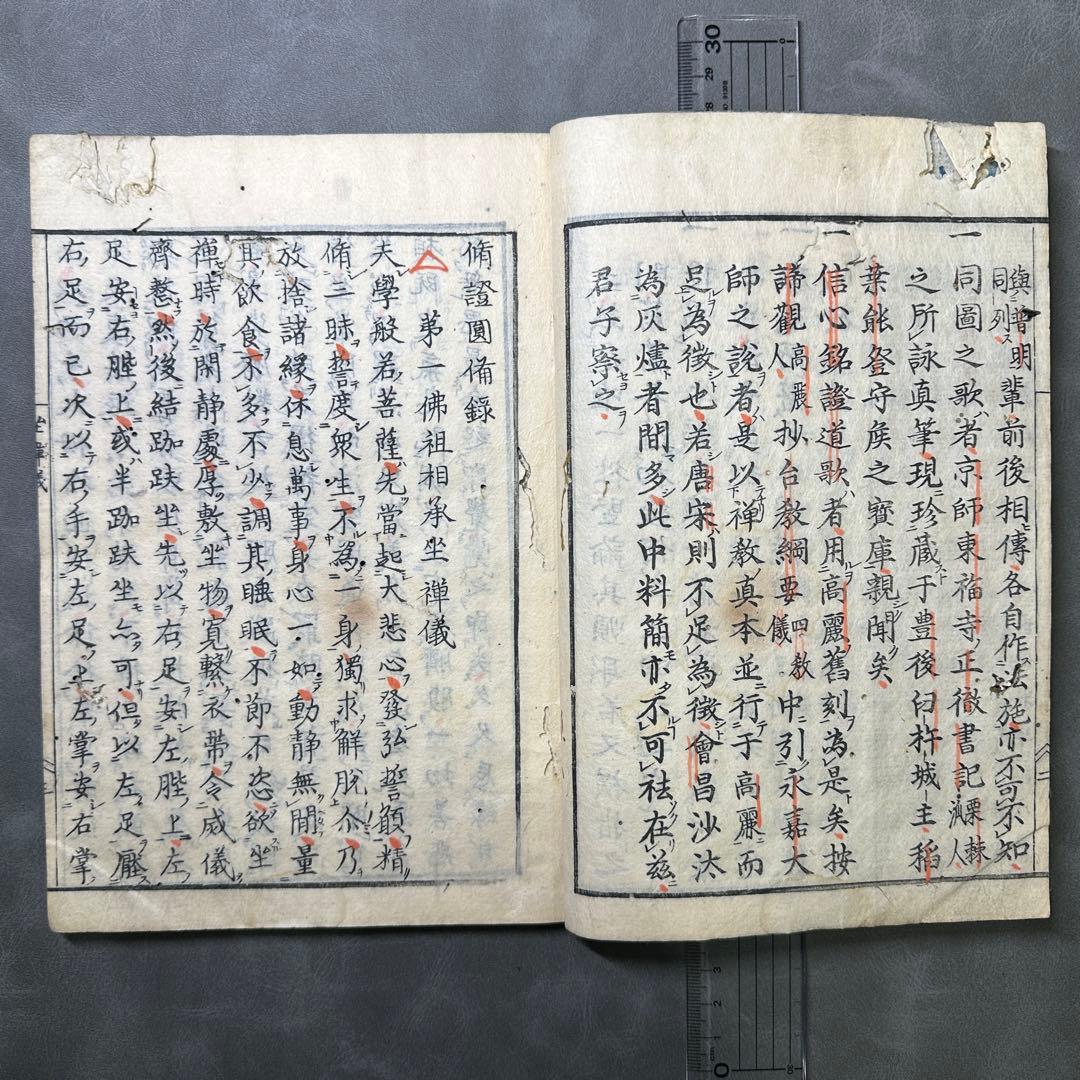 與普明輩前後相傳各自作法施亦不可不知
同列
一同圖之歌者京師東福寺正徹書記栗棘
之所詠真筆現珍蔵于豊後臼杵城主稲
葉能登守矦之寶庫親聞矣
一信心銘證道歌者用高麗舊刻為是矣按
諦觀高麗人抄台教綱要四教儀中引永嘉大
師之説者是以禅教真本並行于高麗而
足為徴也若唐宋則不足為徴會昌沙汰
為灰燼者間多此中料簡亦不可祛在茲
君子察之
脩證圓備録
第二佛祖相承坐禪儀
夫學般若菩薩先當起大悲心發弘誓願精
脩三昧誓度衆生不為一身獨求解脱尒乃
放捨諸緣休息萬事身心一如動静無間量
其飲食不多不少調其睡眠不節不恣欲坐
禪時於閑静處厚敷坐物寛繋衣帶令威儀
齊整然後結跏趺坐先以右足安左䏶上左
足安右䏶上或半跏趺坐亦可但以左足壓
右足而已次以右手安左足上左掌安右掌
30
29
28
3
2
1
0